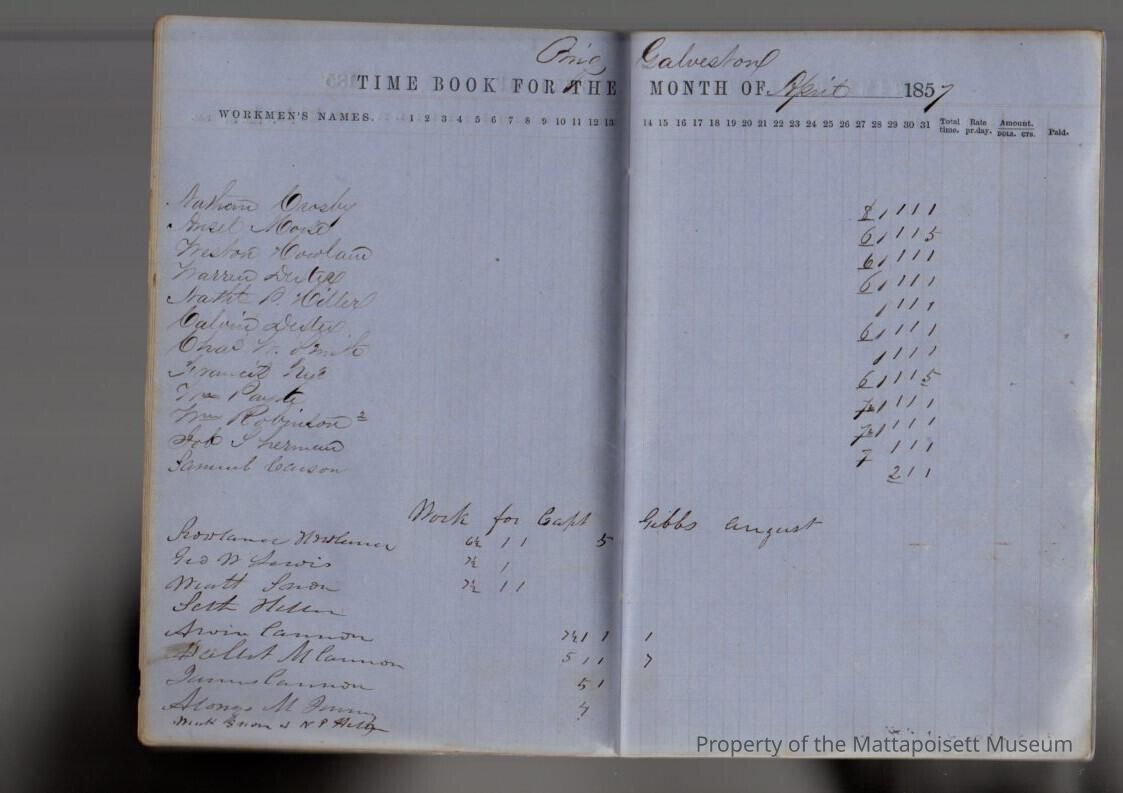 Brig Galveston
TIME BOOK FOR THE MONTH OF April 1857
WORKMEN'S NAMES. 1 2 3 4 5 6 7 8 9 10 11 12 13 14 15 16 17 18 19 20 21 22 23 24 25 26 27 28 29 30 31 Total time. Rate pr.day. Amount. DOLS. CTS. Paid.
Nathan Crosby 8 1 1 1 1
Ansel 6 1 1 1 5
Weston Howland 6 1 1 1 1
Warren Dexter 6 1 1 1 1
B. Hiller 1 1 1 1
Calvin Dexter 6 1 1 1 1
Chas W. Smith 1 1 1 1
Francis Nye 6 1 1 1 5
1 1 1 1
Wm Robinson 2 1 1 1 1
Job Sherman 7 1 1 1
Samuel 2 1 1
Work for Capt Gibbs august
Rowland 6½ 1 1 5
Geo W Lewis 7½ 1
7½ 1 1
Seth
Cannon 7½ 1 1 1
M Cannon 5 1 1 7
James Cannon 5 1
M
Property of the Mattapoisett Museum